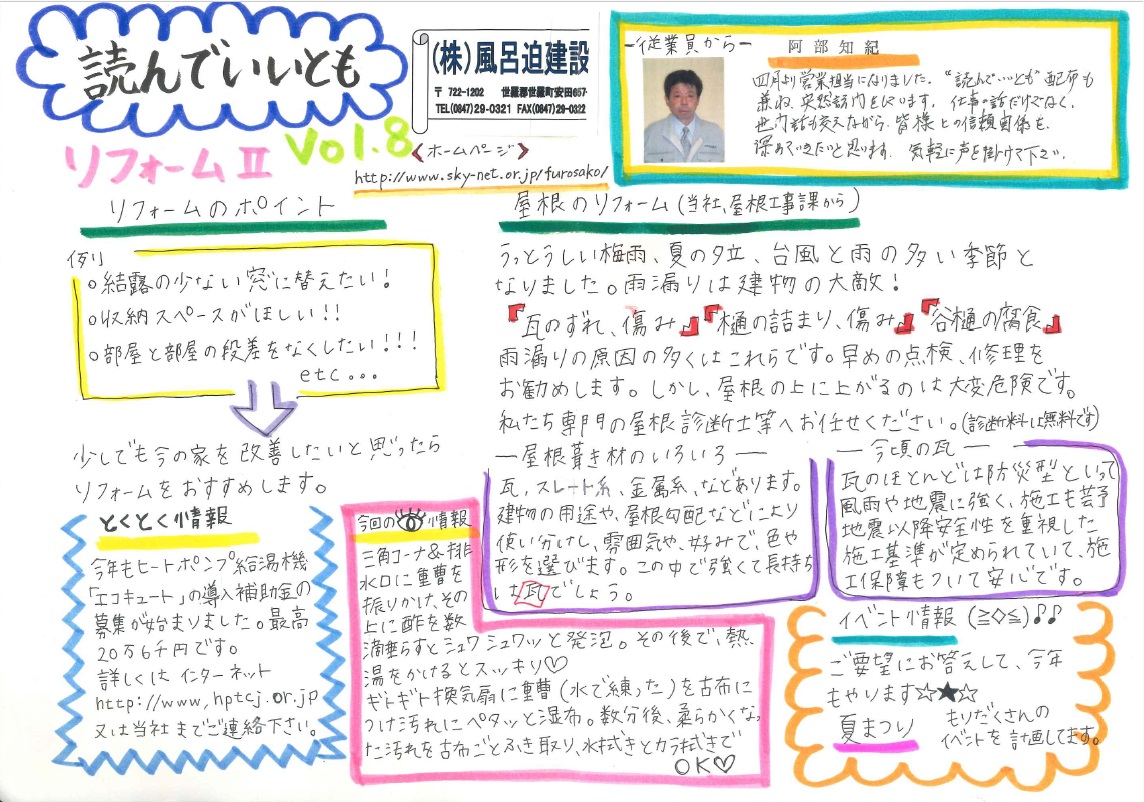 読んでいいとも
リフォームⅡ
Vol.8
(株)風呂迫建設
〒 722-1202 世羅郡世羅町安田657-
TEL(0847)29-0321 FAX(0847)29-0322
《ホームページ》
http://www.sky-net.or.jp/furosako/
―従業員から―
阿部知紀
四月より営業担当になりました。"読んでいいとも"配布も
兼ね、突然訪問を行います。仕事の話だけでなく、
世間話も交えながら、皆様との信頼関係を、
深めていきたいと思います。気軽に声を掛けて下さい。
リフォームのポイント
例)
○結露の少ない窓に替えたい!
○収納スペースがほしい!!
○部屋と部屋の段差をなくしたい!!!
etc...
少しでも今の家を改善したいと思ったら
リフォームをおすすめします。
屋根のリフォーム(当社、屋根工事課から)
うっとうしい梅雨、夏の夕立、台風と雨の多い季節と
なりました。雨漏りは建物の大敵!
『瓦のずれ、傷み』『樋の詰まり、傷み』『谷樋の腐食』
雨漏りの原因の多くはこれらです。早めの点検、修理を
お勧めします。しかし、屋根の上に上がるのは大変危険です。
私たち専門の屋根診断士等へお任せください。(診断料は無料です)
―屋根葺き材のいろいろ―
瓦、スレート系、金属系、などあります。
建物の用途や、屋根勾配などにより
使い分けし、雰囲気や、好みで、色や
形を選びます。この中で強くて長持ち
は瓦でしょう。
―今頃の瓦―
瓦のほとんどは防災型といって
風雨や地震に強く、施工も芸予
地震以降安全性を重視した
施工基準が定められていて、施
工保障もついて安心です。
とくとく情報
今年もヒートポンプ給湯機
「エコキュート」の導入補助金の
募集が始まりました。最高
20万6千円です。
詳しくはインターネット
http://www.hptcj.or.jp
又は当社までご連絡下さい。
今回の 情報
三角コーナ&排
水口に重曹を
振りかけ、その
上に酢を数
滴垂らすとシュワシュワッと発泡。その後で、熱
湯をかけるとスッキリ♡
ギトギト換気扇に重曹(水で練った)を古布に
つけ汚れにペタッと湿布。数分後、柔らかくなっ
た汚れを古布ごとふき取り、水拭きとカラ拭きで
OK♡
イベント情報 (≧◇≦)♪♪
ご要望にお答えして、今年
もやります☆★☆
夏まつり
もりだくさんの
イベントを計画してます。